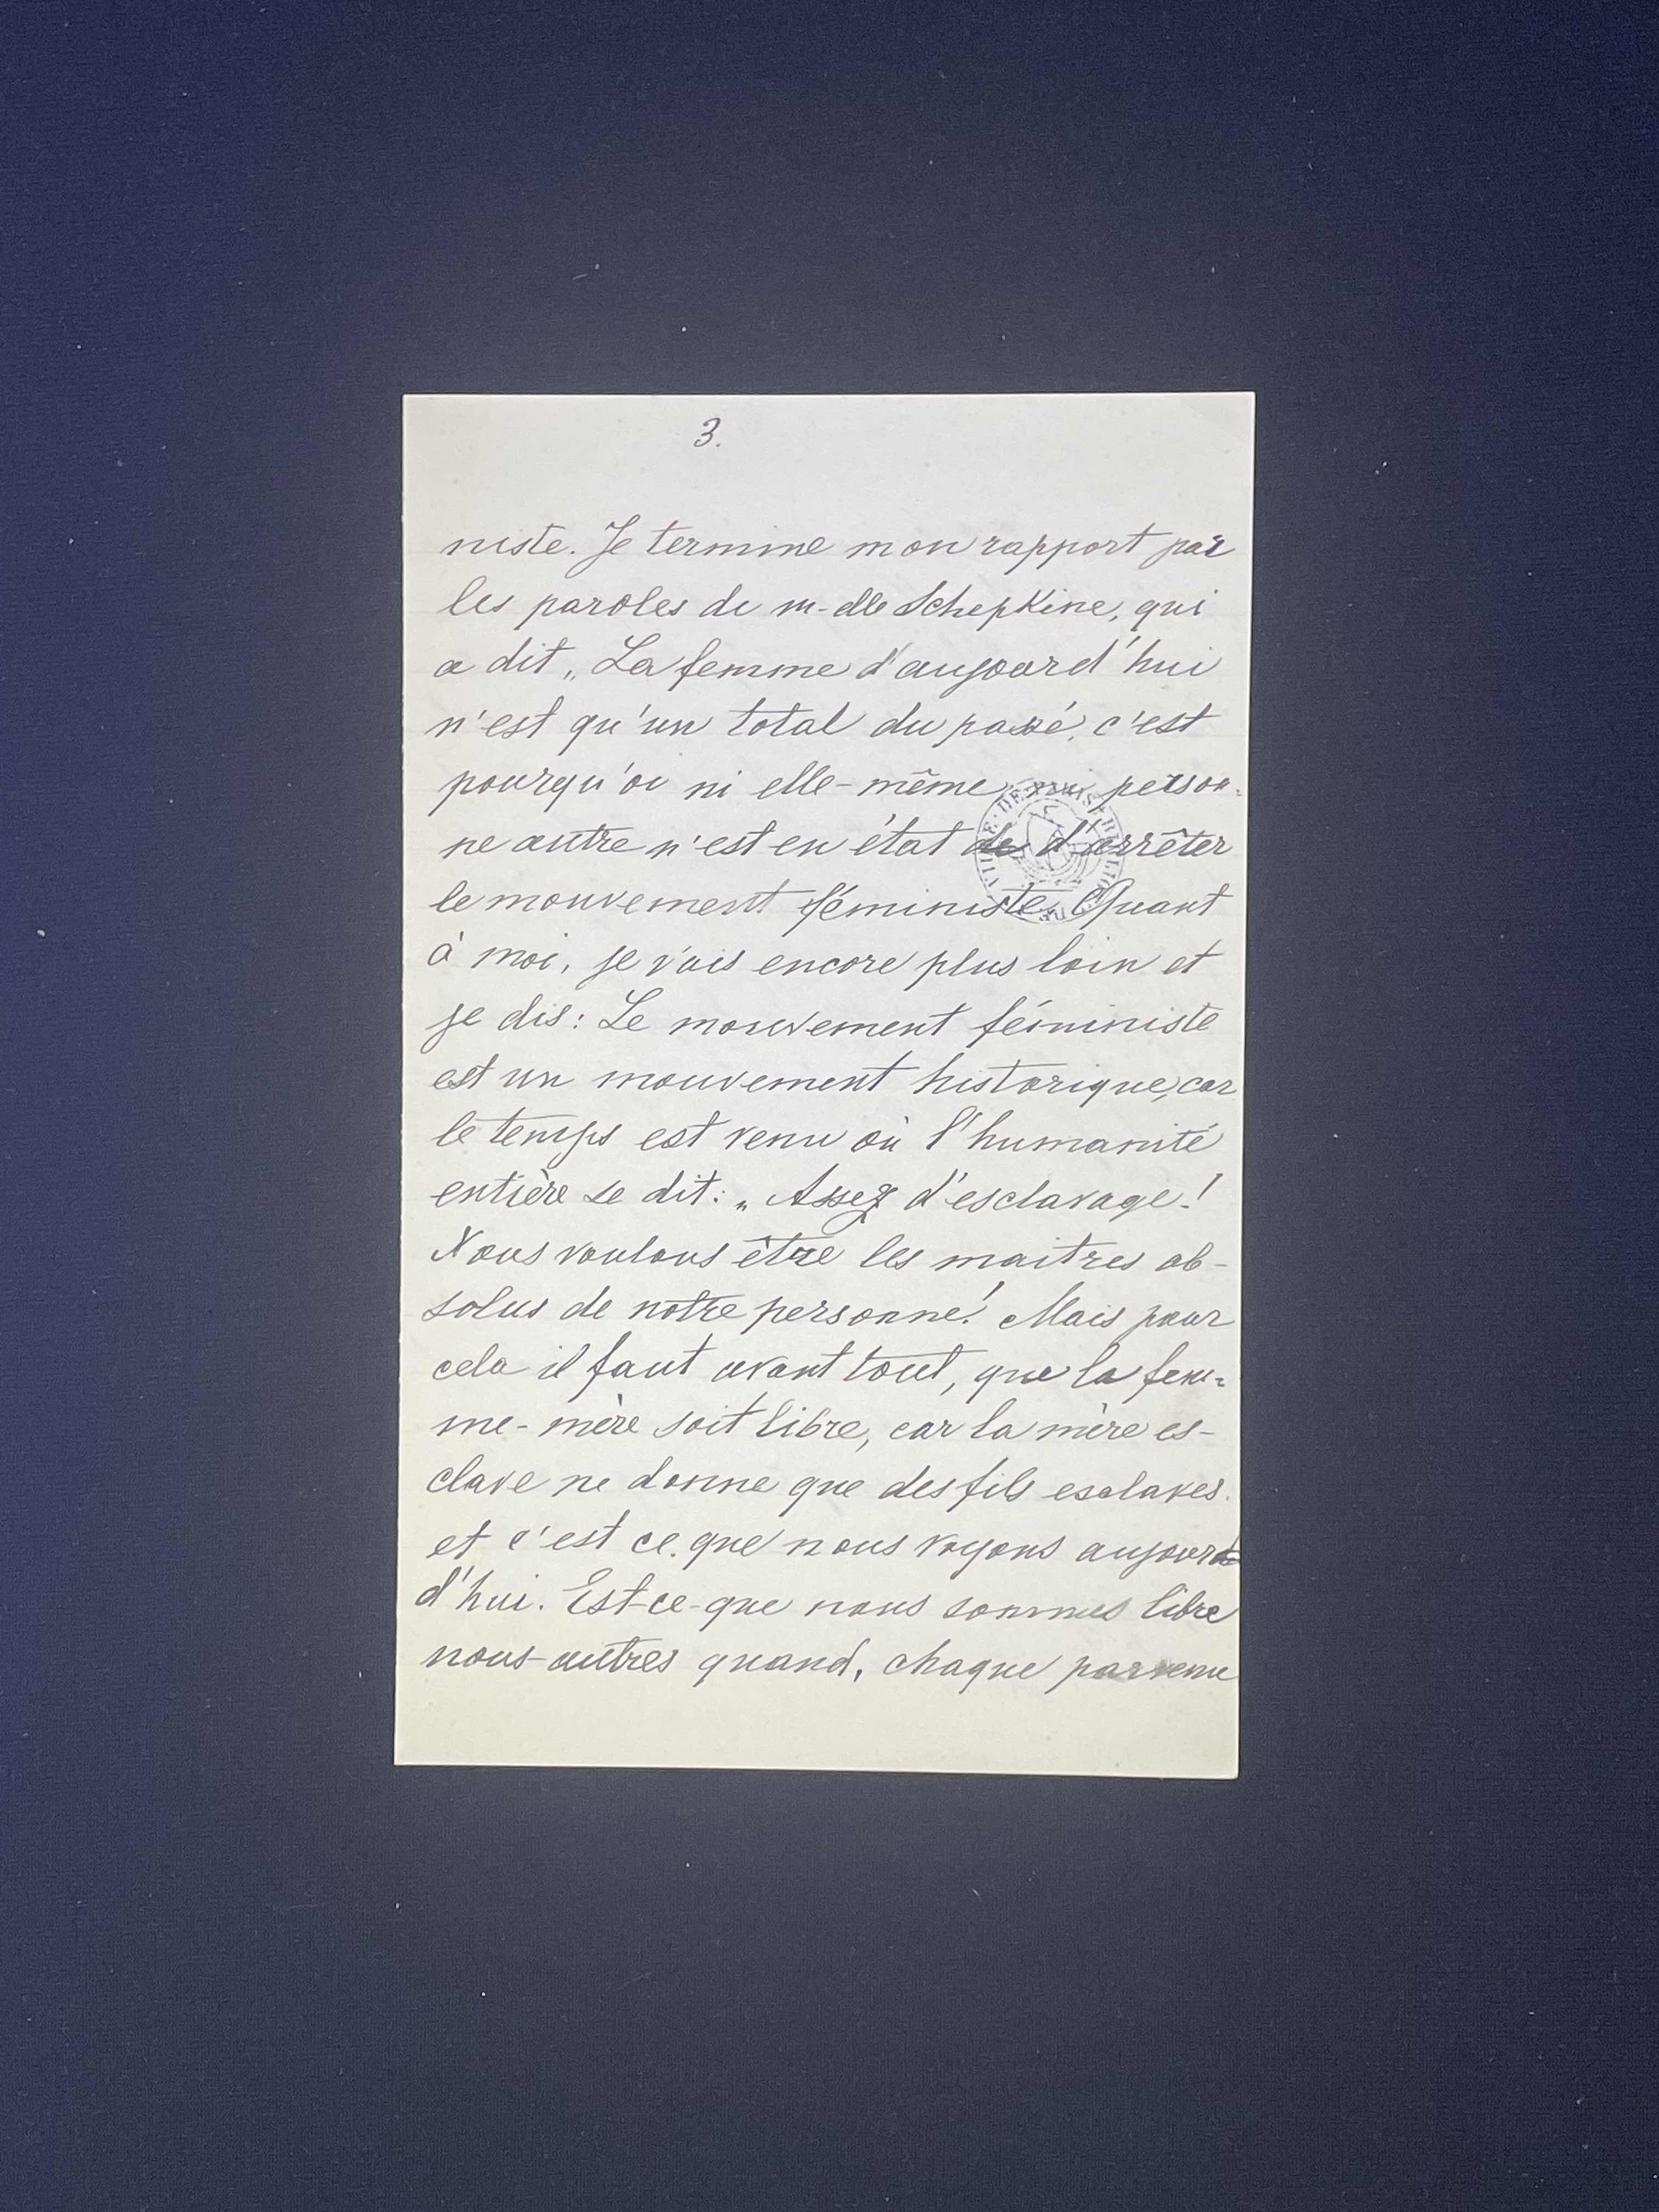 3.
niste. Je termine mon rapport par
les paroles de m-elle Schepkine, qui
a dit „ La femme d'aujourd'hui
n'est qu'un total du passé, c'est
pourqu'oi ni elle-même, ni person-
ne autre n'est en état de d'arrêter
le mouvement féministe. Quant
à moi, je vais encore plus loin et
je dis: Le mouvement féministe
est un mouvement historique, car
le temps est venu où l'humanité
entière se dit: „ Assez d'esclavage!
Nous voulons être les maitres ab-
solus de notre personne! Mais pour
cela il faut avant tout, que la fem-
me-mère soit libre, car la mère es-
clave ne donne que des fils esclaves.
et c'est ce que nous voyons aujourd
d'hui. Est-ce-que nous sommes libre
nous-autres quand, chaque parvenu